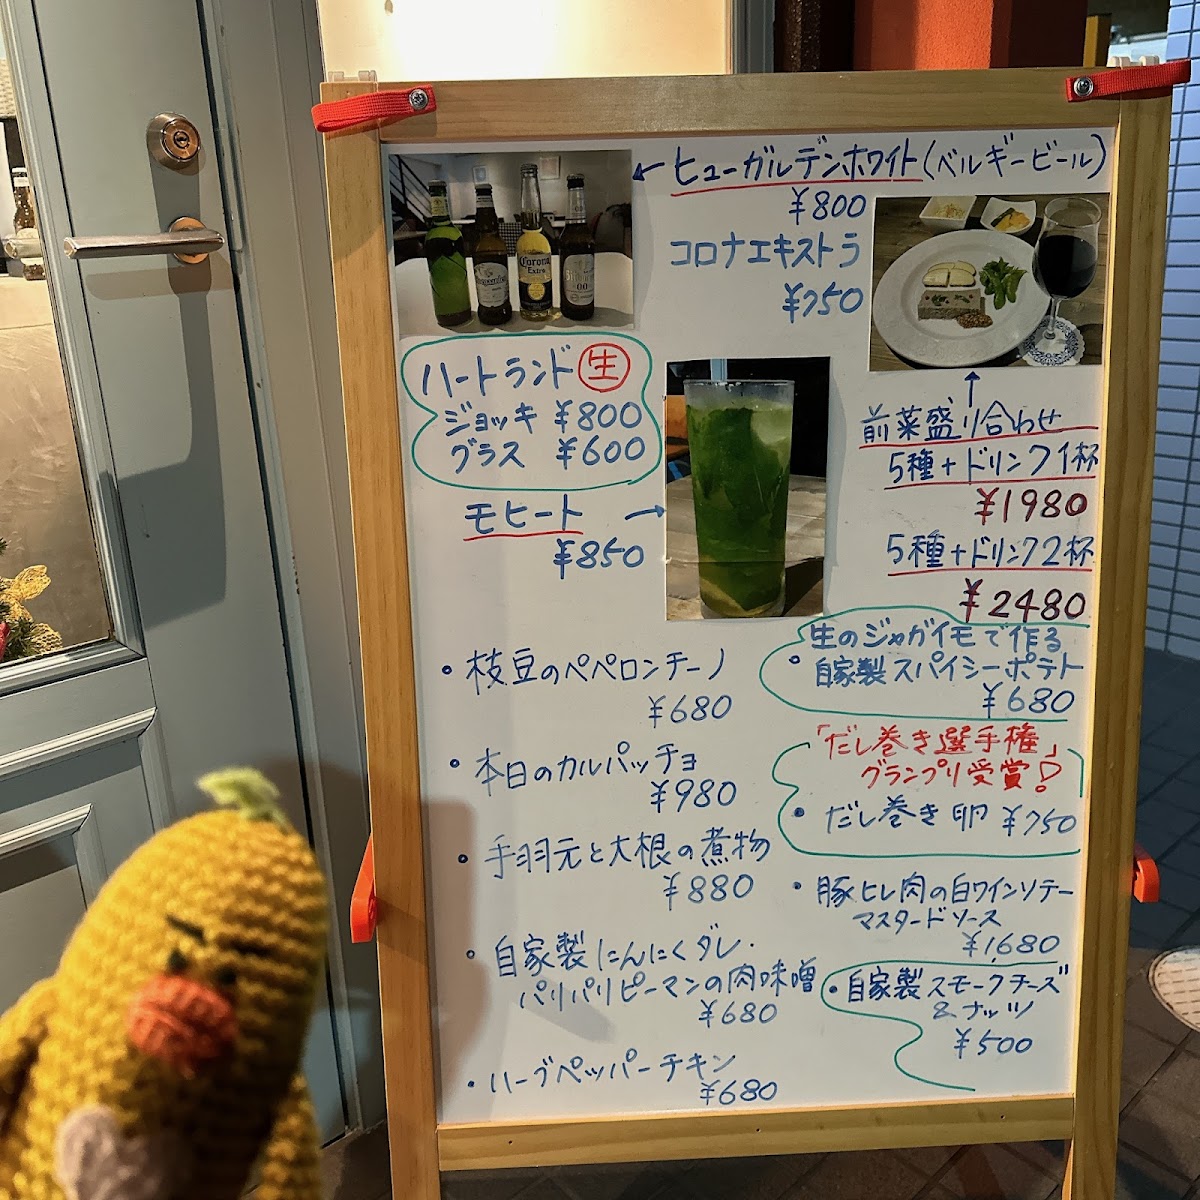 ←ヒューガルデンホワイト(ベルギービール)
¥800
コロナエキストラ
¥750
Corona
Extra
ハートランド 生
ジョッキ ¥800
グラス ¥600
モヒート →
¥850
↑
前菜盛り合わせ
5種+ドリンク1杯
¥1980
5種+ドリンク2杯
¥2480
・枝豆のペペロンチーノ
¥680
・本日のカルパッチョ
¥980
・手羽元と大根の煮物
¥880
・自家製にんにくダレ・
パリパリピーマンの肉味噌
¥680
・ハーブペッパーチキン
¥680
生のジャガイモで作る
・自家製スパイシーポテト
¥680
「だし巻き選手権」
グランプリ受賞!
・だし巻き卵 ¥750
・豚ヒレ肉の白ワインソテー
マスタードソース
¥1680
・自家製スモークチーズ
&ナッツ
¥500